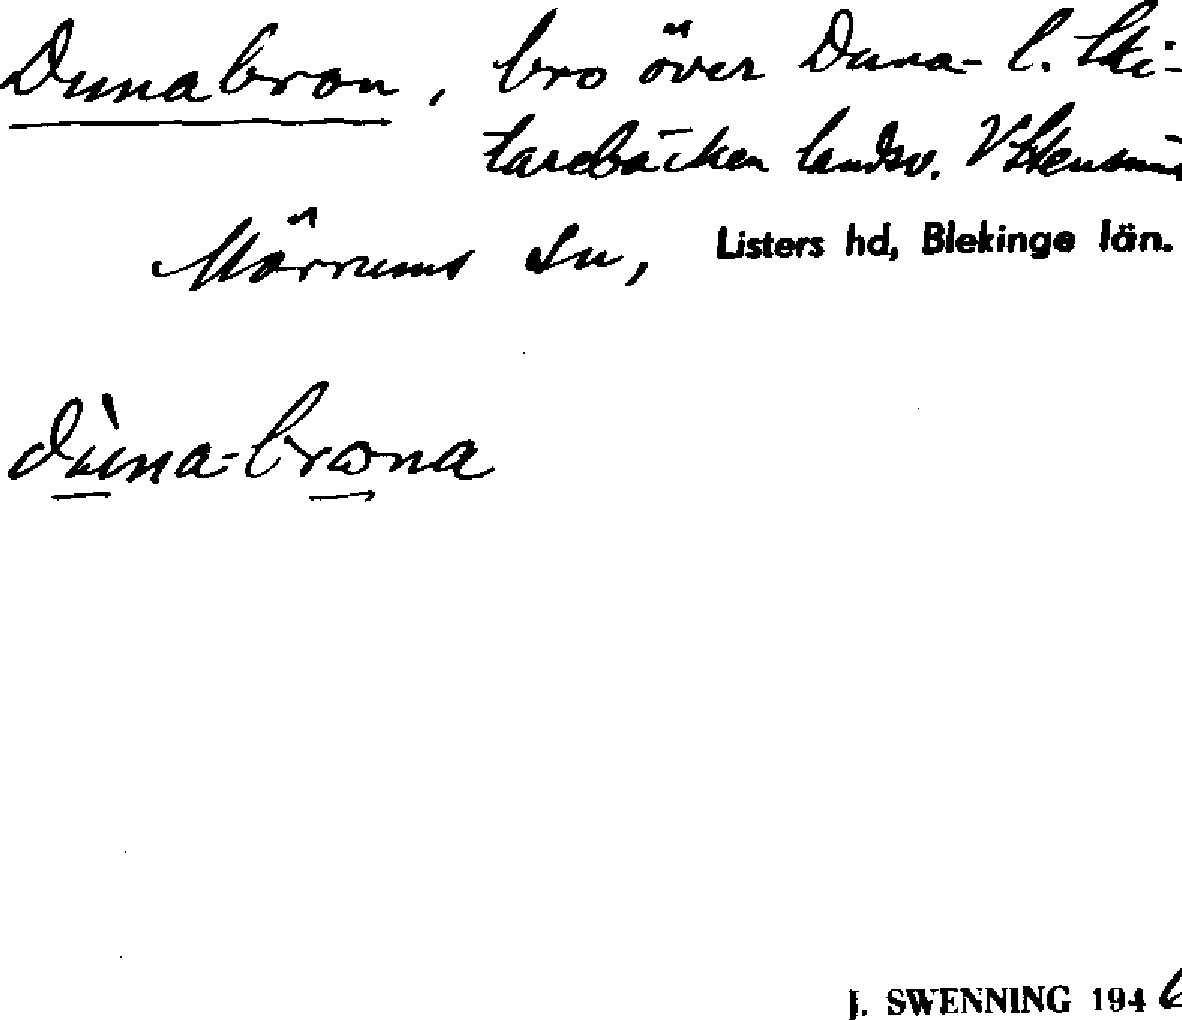 Dunabron, bro över Duna- l. Ski-
tarebäcken landsv. V Stensnäs
Mörrums sn, Listers hd, Blekinge län.
dùna-brona
J. SWENNING 1946